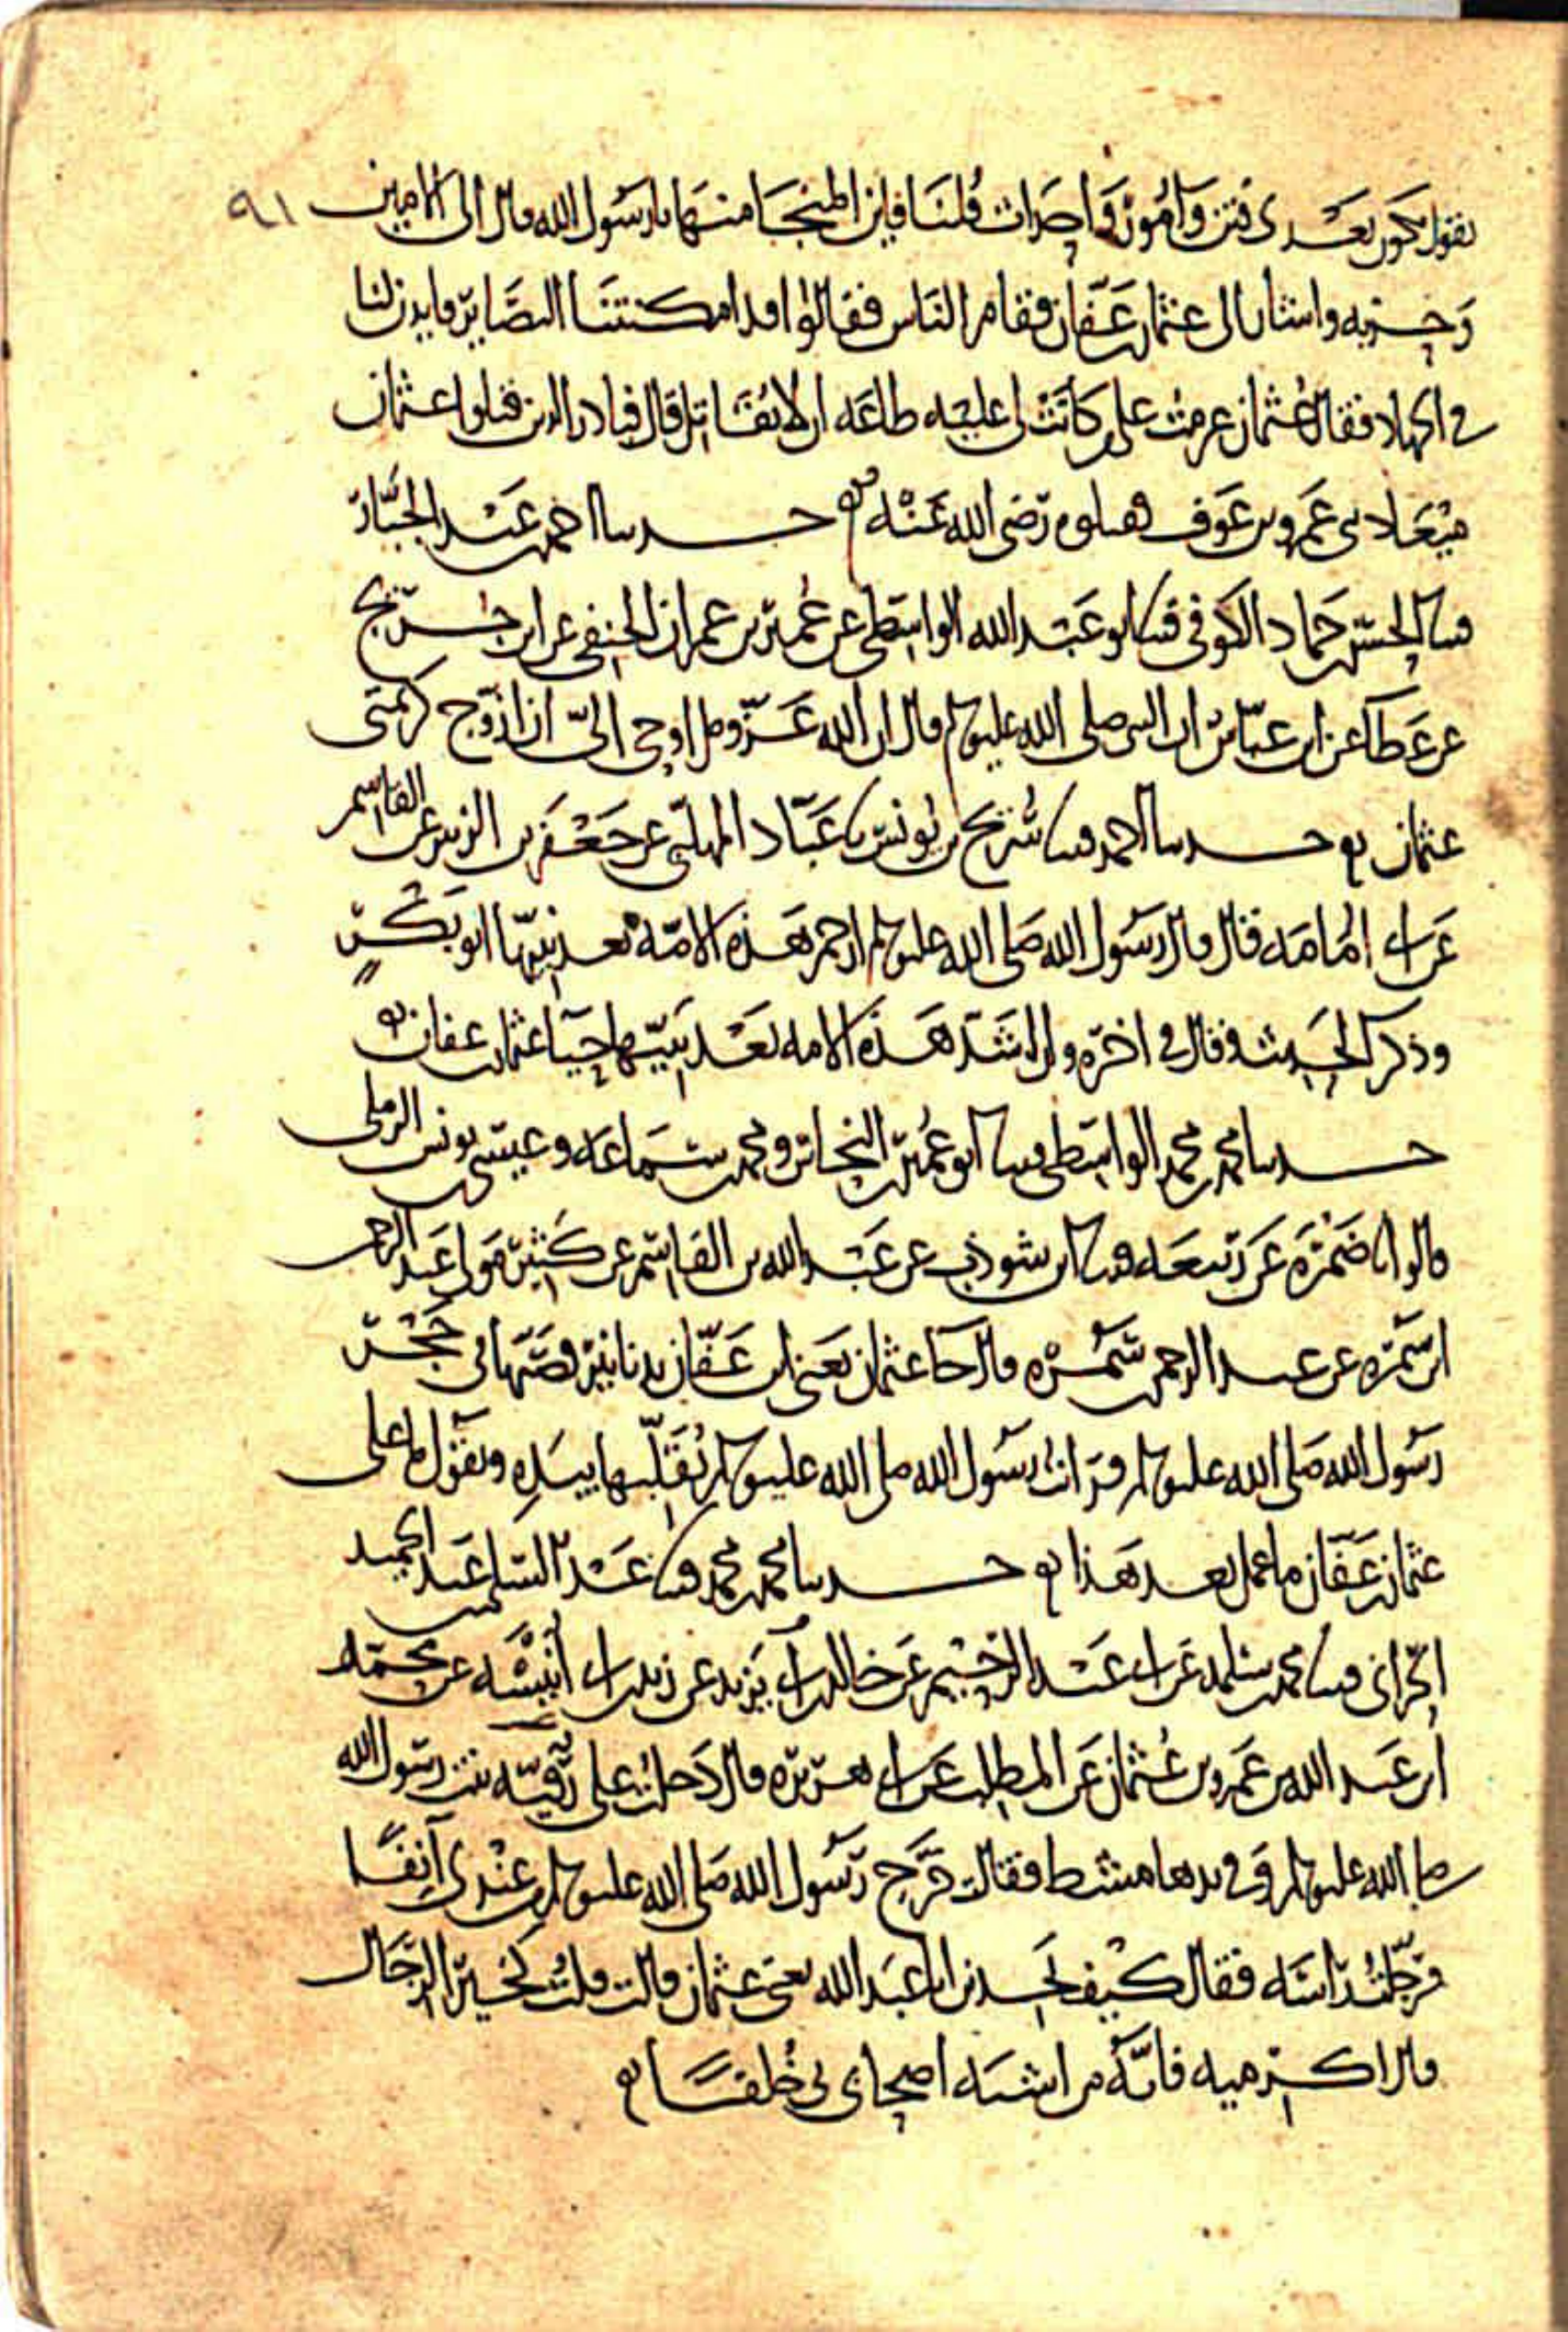 يقول تكون بعدي فتن وامور واحداث قلنا فاين المنجا منها يا رسول الله قال الى الامين ٩١
وحزبه واشار الى عثمان بن عفان فقام الناس فقالوا قد امكنتنا البصاير فايذن لنا
في الجهاد فقال عثمان عزمت على من كانت لي عليه طاعه ان لا يقاتل قال فبادر الذين قتلوا عثمان
ميعاد بني عمرو بن عوف فقتلوه رضي الله عنه حدثنا احمد بن عبد الجبار
ثنا الحسن بن حماد الكوفي ثنا ابو عبد الله الواسطي عن عمير بن عمران الحنفي عن ابن جريج
عن عطا عن ابن عباس ان النبي صلى الله عليه وسلم قال ان الله عز وجل اوحى الي ان ازوج كريمتي
عثمان حدثنا احمد ثنا شريح بن يونس ثنا عباد المهلبي عن جعفر بن الزبير عن القاسم
عن ابي امامه قال قال رسول الله صلى الله عليه وسلم ارحم هذه الامة بعد نبيها ابو بكر
وذكر الحديث وقال في اخره وان اشد هذه الامه بعد نبيها حيا عثمان بن عفان
حدثنا محمد بن محمد الواسطي ثنا ابو عمير بن النحاس ومحمد بن سماعه وعيسى بن يونس الرملي
قالوا انا ضمرة عن ربيعه ثنا ابن شوذب عن عبد الله بن القاسم عن كثير مولى عبد الرحمن
ابن سمره عن عبد الرحمن بن سمره قال جا عثمان يعني ابن عفان بدنانير فصبها في حجر
رسول الله صلى الله عليه وسلم فرايت رسول الله صلى الله عليه وسلم يقلبها بيده ويقول ما على
عثمان بن عفان ما عمل بعد هذا حدثنا محمد بن محمد ثنا عبد السلام بن عبد الحميد
الحراني ثنا محمد بن سلمه عن ابي عبد الرحيم عن خالد بن ابي يزيد عن زيد بن ابي انيسه عن محمد
ابن عبد الله بن عمرو بن عثمان عن المطلب عن ابي هريره قال دخلت على رقيه بنت رسول الله
صلى الله عليه وسلم وفي يدها مشط فقالت خرج رسول الله صلى الله عليه وسلم من عندي آنفا
فرجلت راسه فقال كيف تجدين ابا عبد الله يعني عثمان قالت قلت كخير الرجال
قال اكرميه فانه من اشبه اصحابي بي خلقا